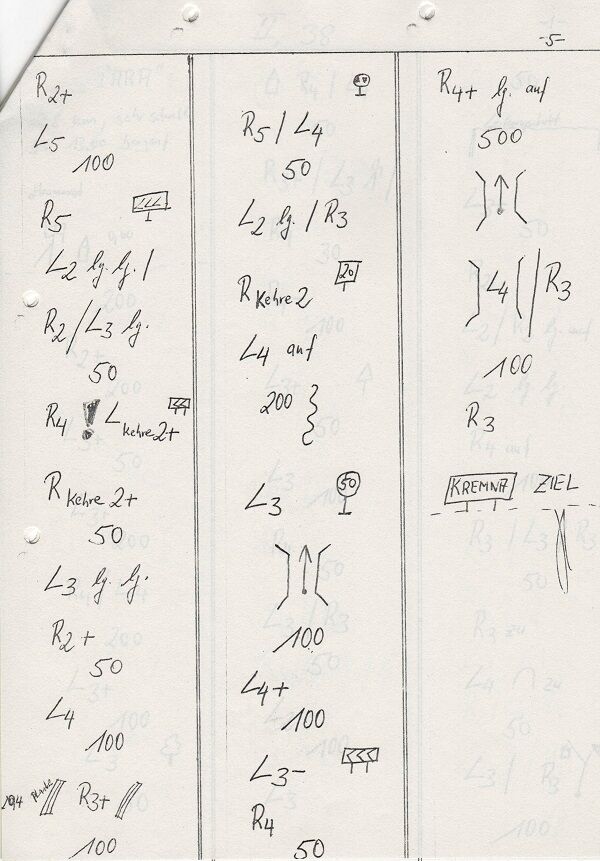 -5-
R2+
L5
100
R5
L2 lg. lg. /
R2/L3 lg.
50
R4 ! L Kehre 2+
R Kehre 2+
50
L3 lg. lg.
R2+
50
L4
100
R3+
100
R5/L4
50
L2 lg. / R3
R Kehre 2 20
L4 auf
200
L3 50
100
L4+
100
L3-
R4
50
R4+ lg. auf
500
L4 / R3
100
R3
KREMNA ZIEL